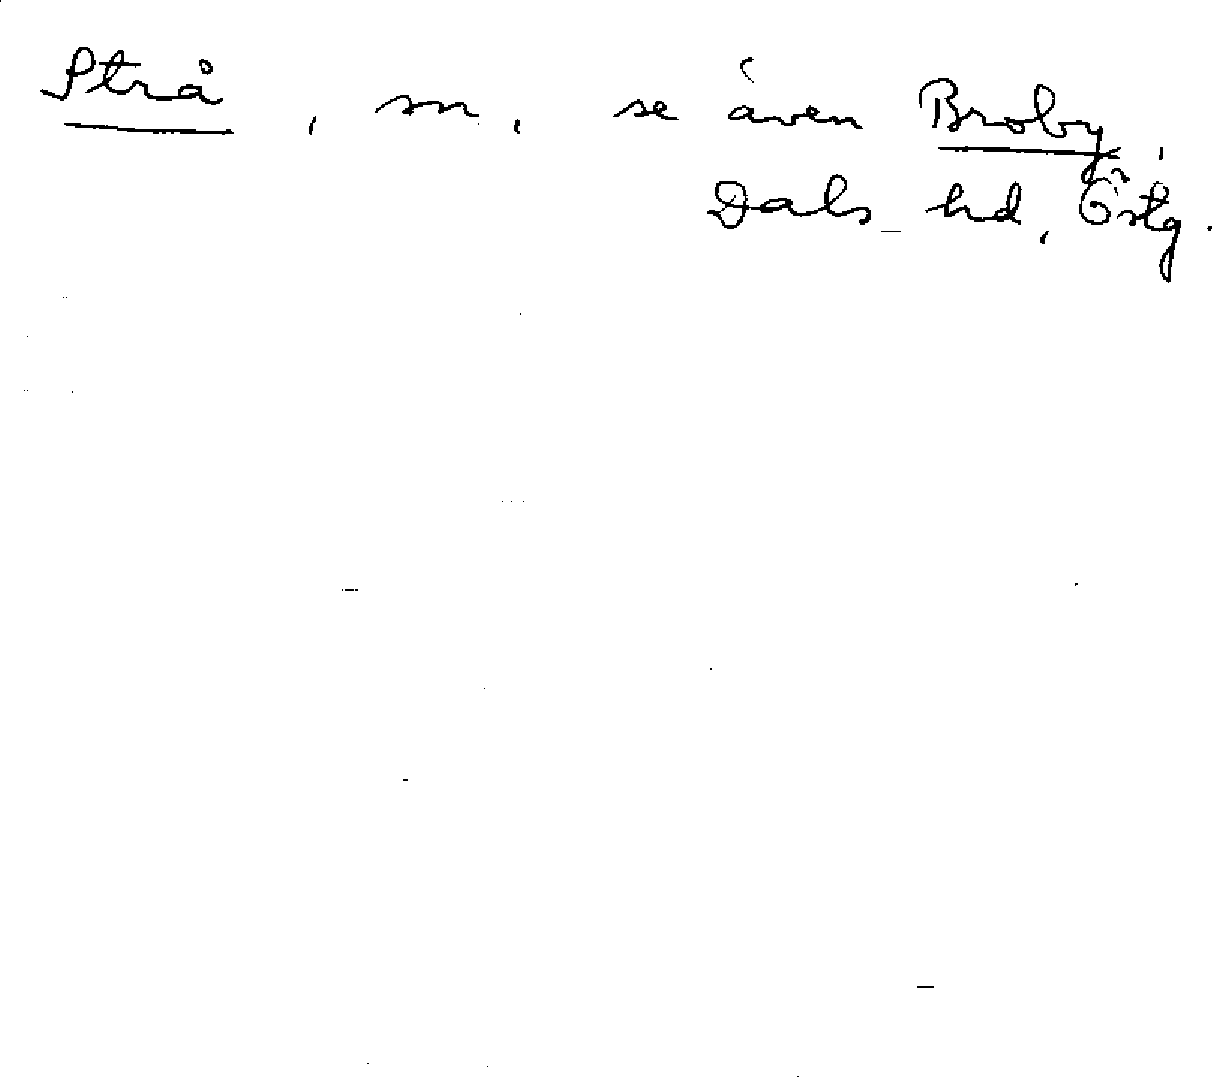 Strå, sn, se även Broby,
Dals hd, Östg.